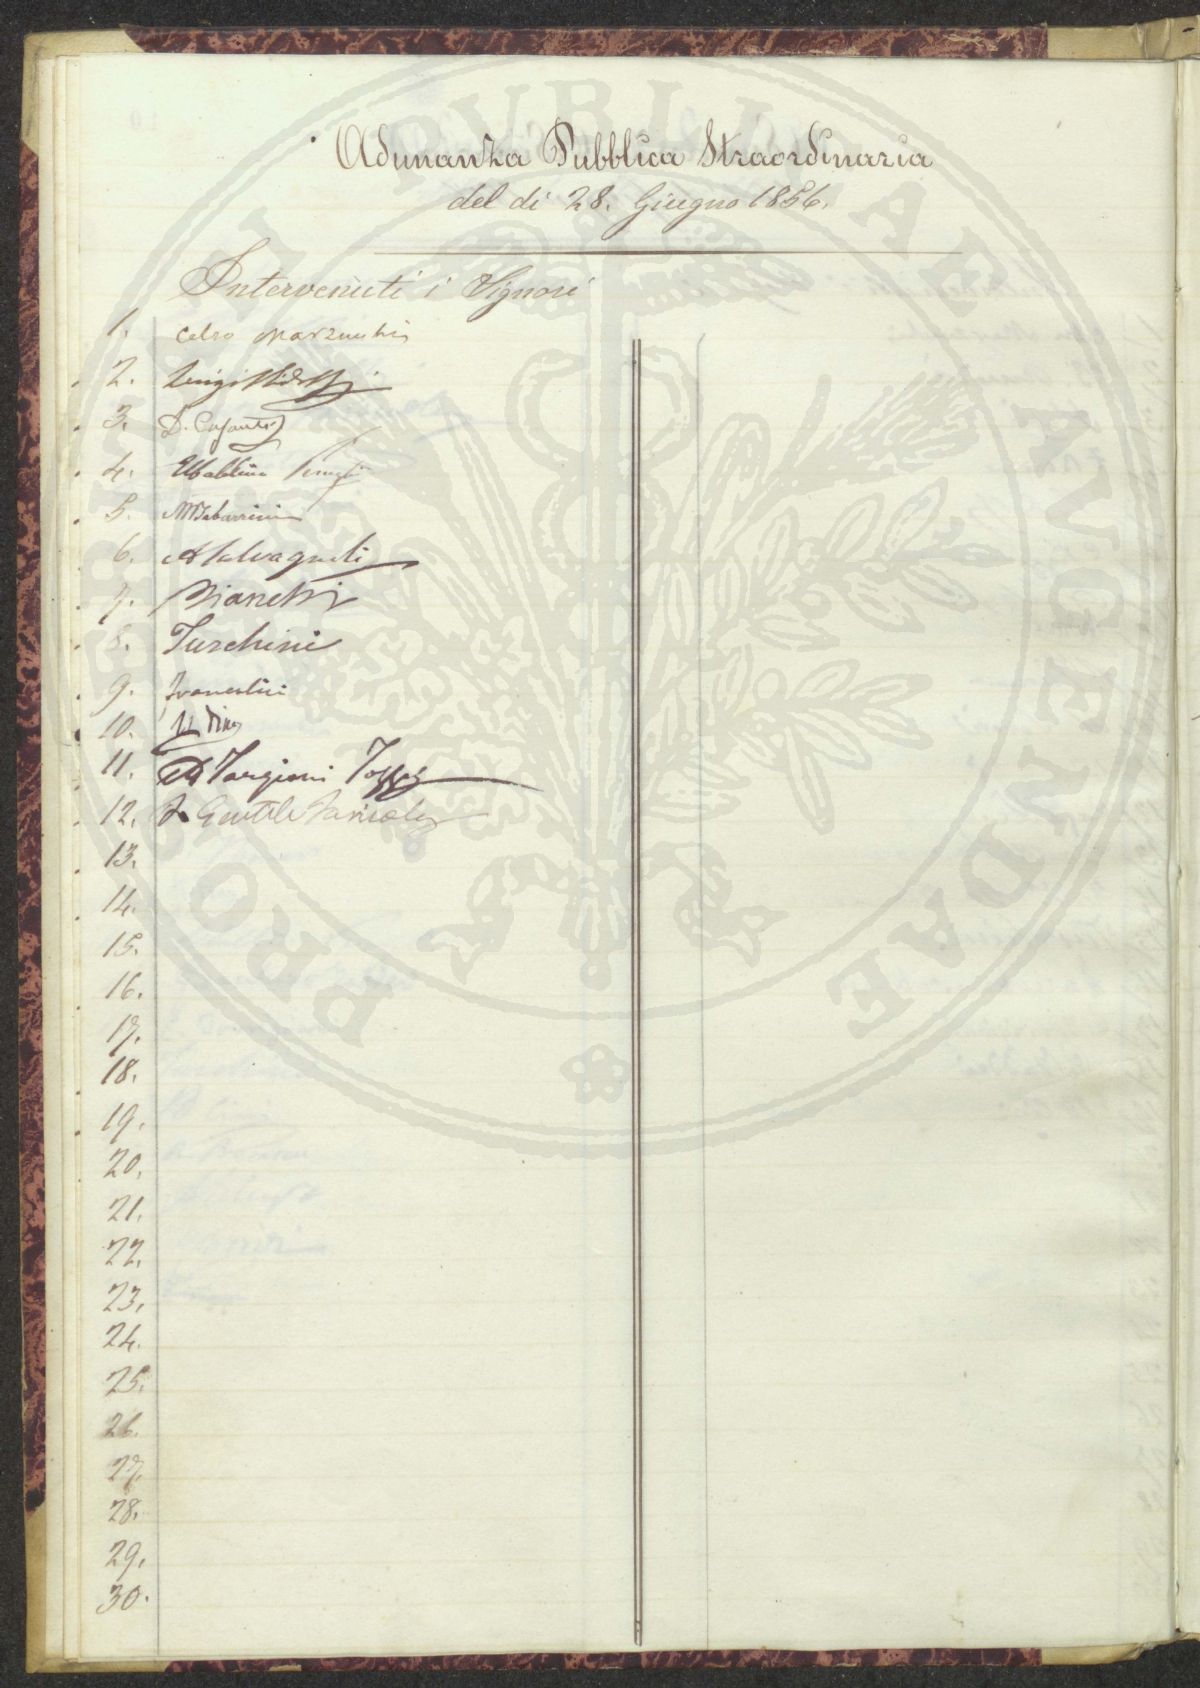 Adunanza Pubblica Straordinaria
del di 28. Giugno 1856.
Intervenuti i Signori
1. Celso Marzucchi
2. Luigi Ridolfi
3. D. Cafanti
4.
5. M Tabarrini
6. A Salvagnoli
7. Bianchi
8. Turchini
9. Franceschi
10.
11. A Targioni Tozzetti
12. Gentile Farinola
13.
14.
15.
16.
17.
18.
19.
20.
21.
22.
23.
24.
25.
26.
27.
28.
29.
30.
PRO PUBLICAE AUGENDAE